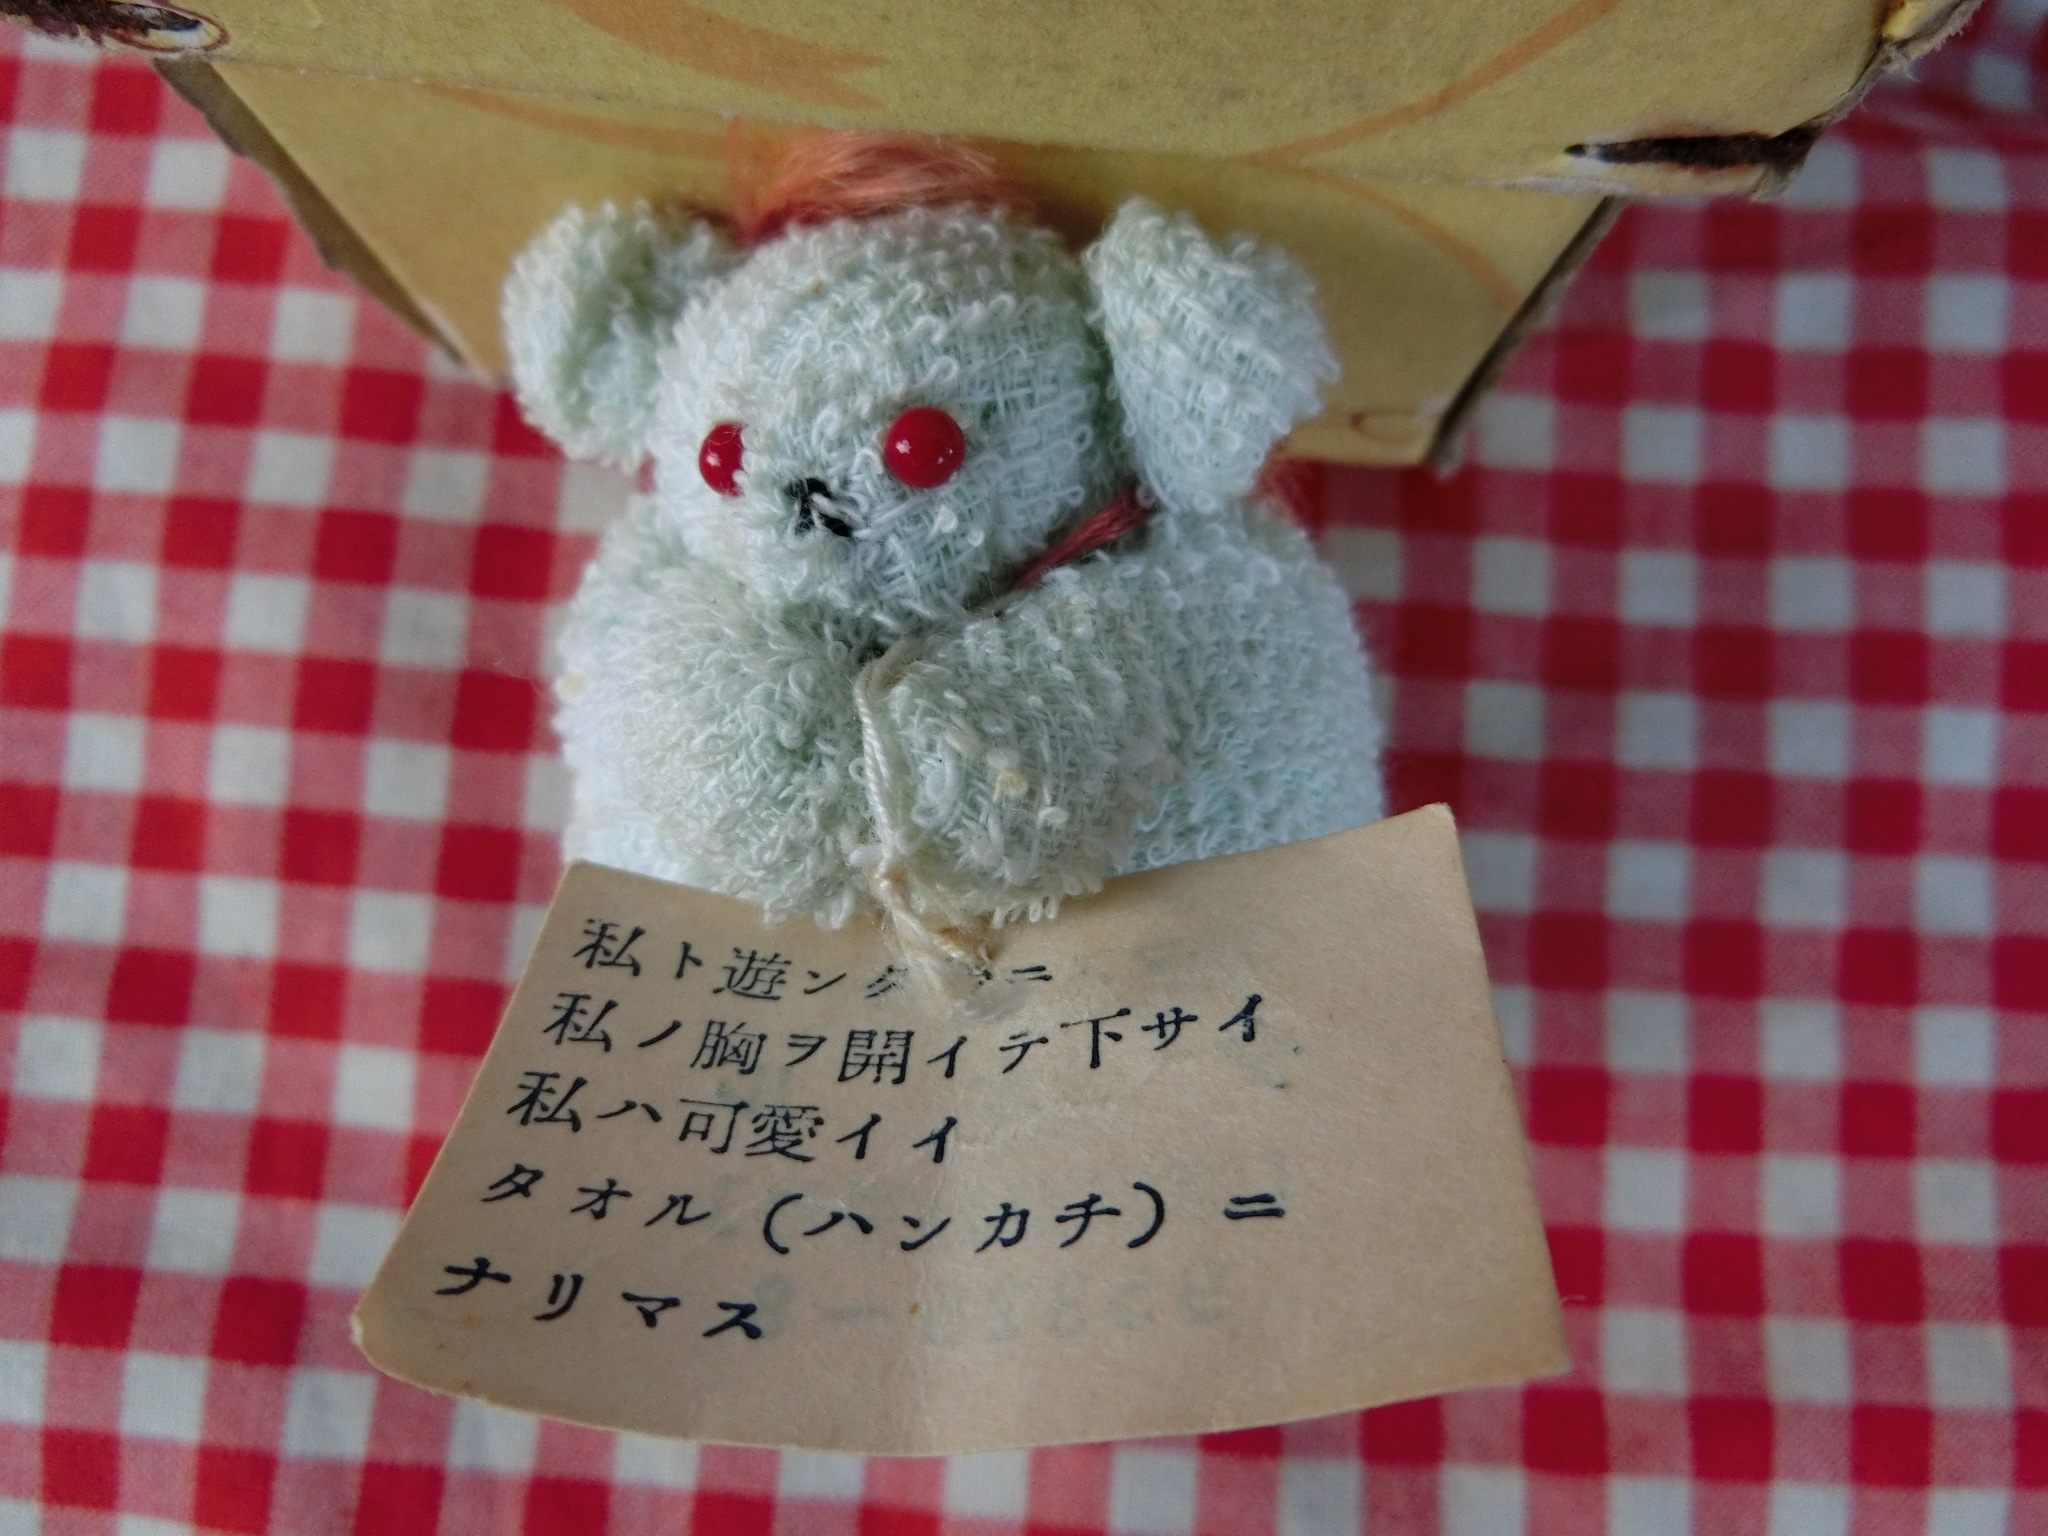 私ト遊ンダアニ
私ノ胸ヲ開イテ下サイ
私ハ可愛イイ
タオル（ハンカチ）ニ
ナリマス